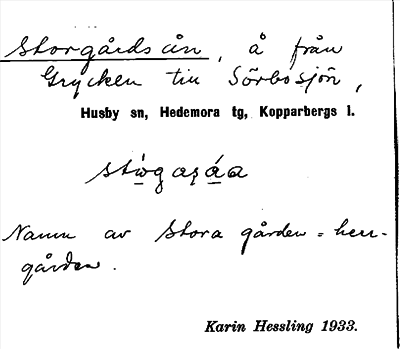 Storgårdsån, å från
Grycken till Sörbosjön,
Husby sn, Hedemora tg, Kopparbergs l.
Namn av Stora gården = herr-
gården.
Karin Hessling 1933.